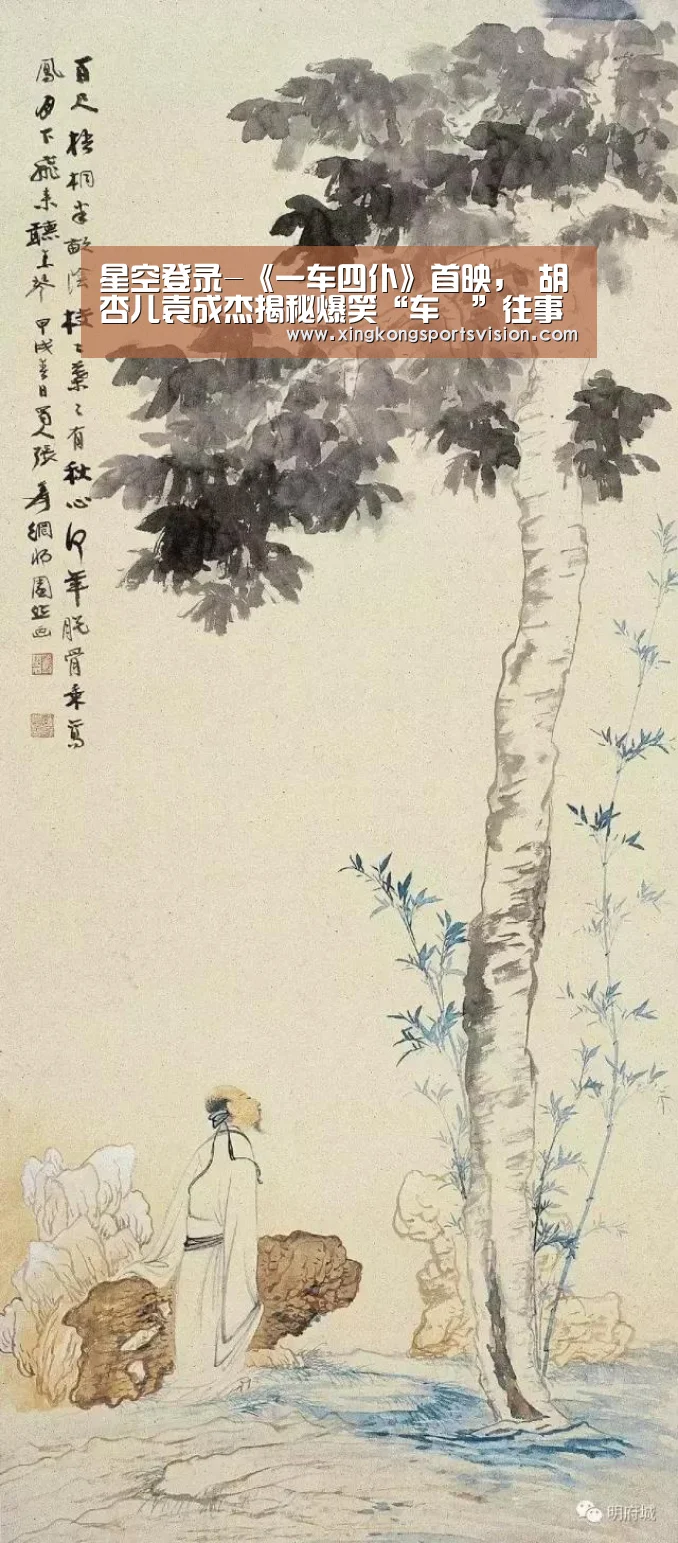 百尺梧桐半畝陰枝〻葉〻有秋心何年脫骨乘鸞
鳳月下飛來聽玉琴 甲戌春日蜀人張爰網師園並画
星空登录-《一车四仆》首映， 胡
杏儿袁成杰揭秘爆笑“车 ”往事
www.xingkongsportsvision.com
明府城